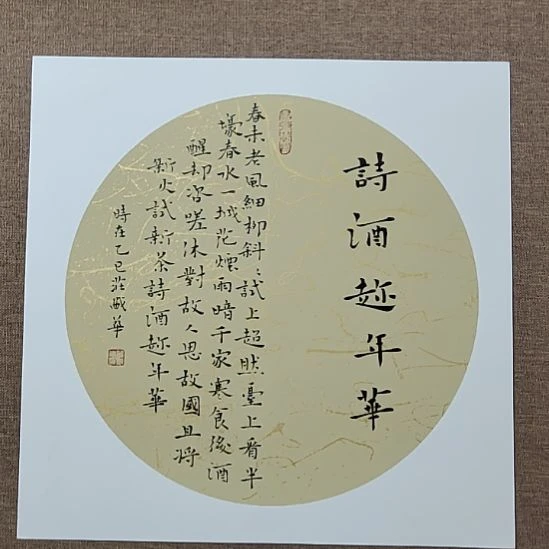 詩酒趂年華
春未老風細柳斜〻試上超然臺上看半
壕春水一城花煙雨暗千家寒食後酒
醒却咨嗟休對故人思故國且將
新火試新茶詩酒趂年華
時在乙巳莊敏華